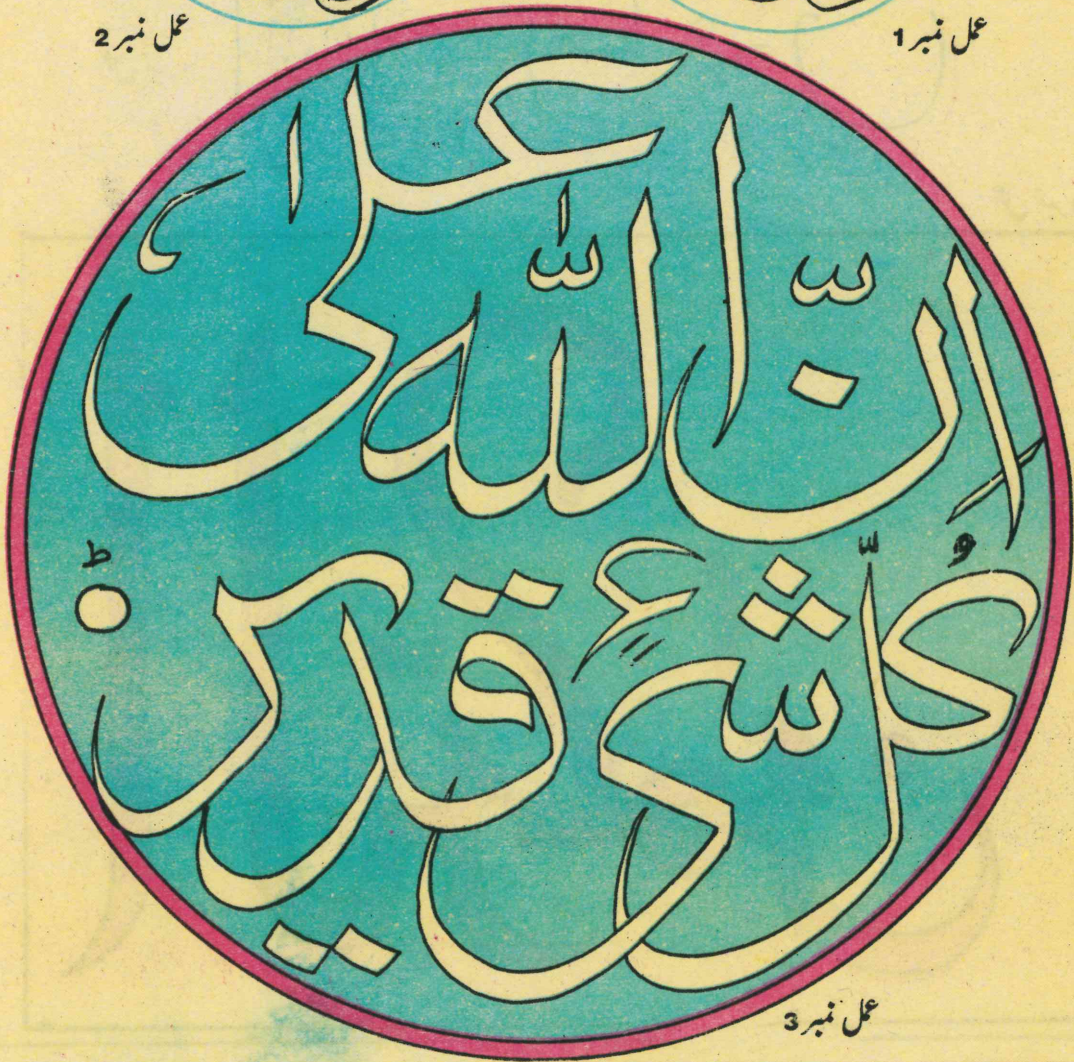 عمل نمبر 1
عمل نمبر 2
اِنَّ اللّٰه عَلٰى
كُلّ شیءٍ قدیر ط
عمل نمبر 3